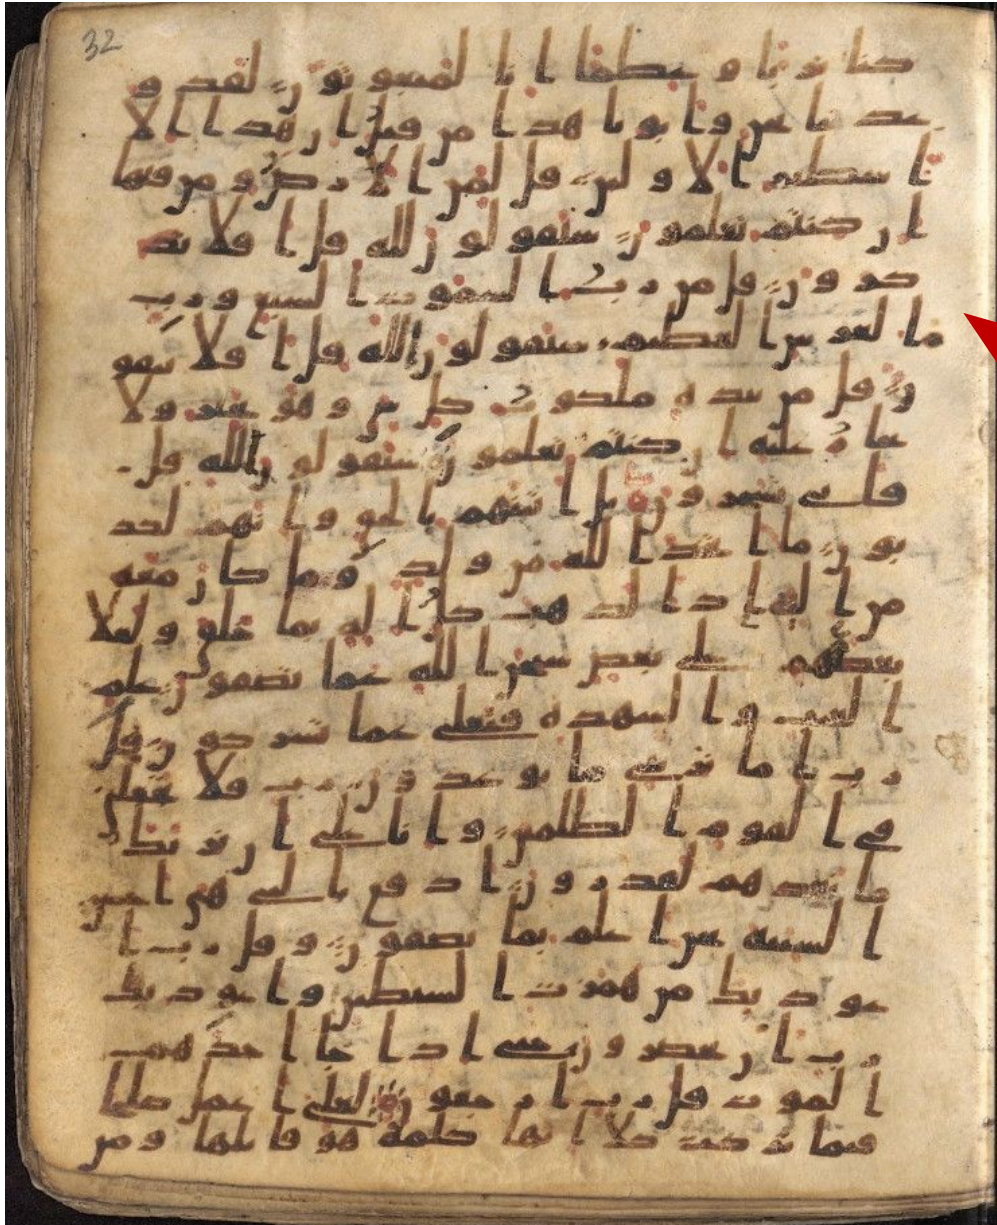 كنا تربا و عظما ا نا لمبعوثون لقد و
عدنا نحن واباونا هدا من قبل ان هدا الا
اسطير الاولين قل لمن الارض ومن فيها
ان كنتم تعلمون سيقولون لله قل افلا تد
كرون قل من رب السموت السبع ورب
العرش العظيم سيقولون الله قل افلا تتقو
ن قل من بيده ملكوت كل شي وهو يجير ولا
يجار عليه ان كنتم تعلمون سيقولون الله قل
فانى تسحرون بل اتينهم بالحق وانهم لكد
بون ما اتخد الله من ولد وما كان معه
من اله ادا لدهب كل اله بما خلق ولعلا
بعضهم على بعض سبحن الله عما يصفون علم
الغيب والشهدة فتعلى عما يشركون قل
رب اما تريني ما يوعدون رب فلا تجعلني
في القوم الظلمين وانا على ان نريك
ما نعدهم لقدرون ادفع بالتي هي احسن
السيئة نحن اعلم بما يصفون وقل رب ا
عود بك من همزت الشيطين واعود بك
رب ان يحضرون حتى ادا جا احدهم
الموت قل رب ارجعون لعلي اعمل صلحا
فيما تركت كلا انها كلمة هو قايلها ومن
32